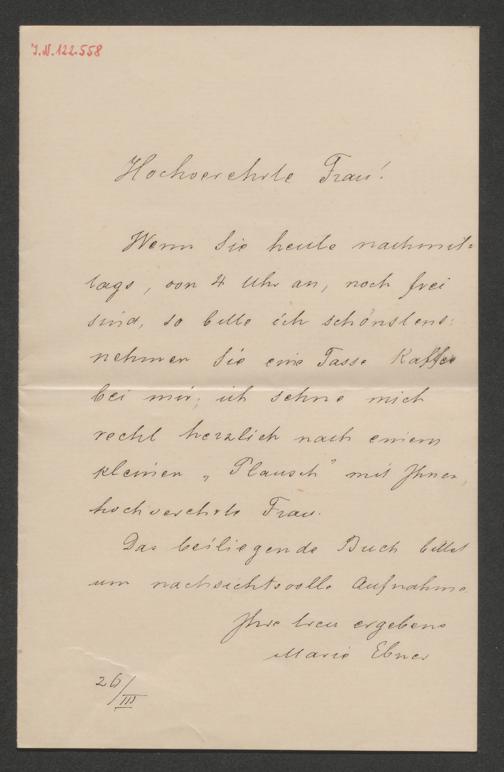 J.N. 122.558
Hochverehrte Frau!
Wenn Sie heute nachmit=
tags, von 4 Uhr an, noch frei
sind, so bitte ich schönstens:
nehmen Sie eine Tasse Kaffee
bei mir; ich sehne mich
recht herzlich nach einem
kleinen „Plausch" mit Ihnen,
hochverehrte Frau.
Das beiliegende Buch bittet
um nachsichtsvolle Aufnahme.
Ihre treu ergebene
Marie Ebner
26/III